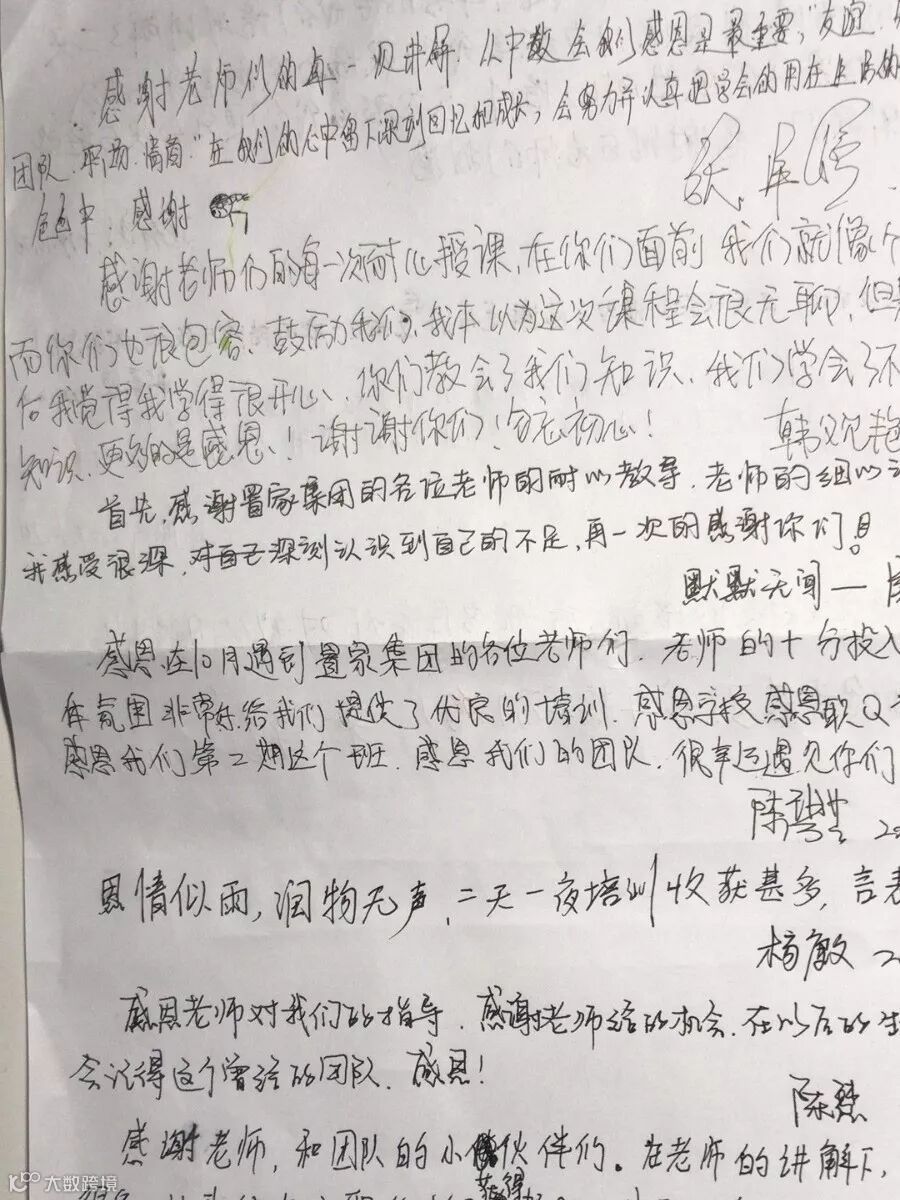 感谢老师们的每一次讲解.从中教会我们感恩是最重要,"友谊.
团队.职场.情商."在我们的心中留下深刻回忆和成长,会努力并认真把学会的用在生活的
色中.感谢
感谢老师们的每一次耐心授课,在你们面前我们就像个
而你们也很包容、鼓励我们,我本以为这次课程会很无聊,但
后我觉得我学得很开心、你们教会了我们知识、我们学会了不
知识、更多的是感恩!谢谢你们!勿忘初心!
韩
首先,感谢置家集团的各位老师的耐心教导,老师的细心
我感受很深,对自己深刻认识到自己的不足,再一次的感谢你们!
默默无闻—
感恩在10月遇到置家集团的各位老师们.老师的十分投入
体氛围非常好.给我们提供了优良的培训.感恩学校感恩职Q
感恩我们第二期这个班.感恩我们的团队.很幸运遇见你们
陈
恩情似雨,润物无声,二天一夜培训收获甚多,言表
杨敏
感恩老师对我们的指导.感谢老师给的机会.在以后的生
会记得这个曾经的团队.感恩!
陈慧
感谢老师,和团队的小伙伴们。在老师的讲解下,
获得
大数跨境